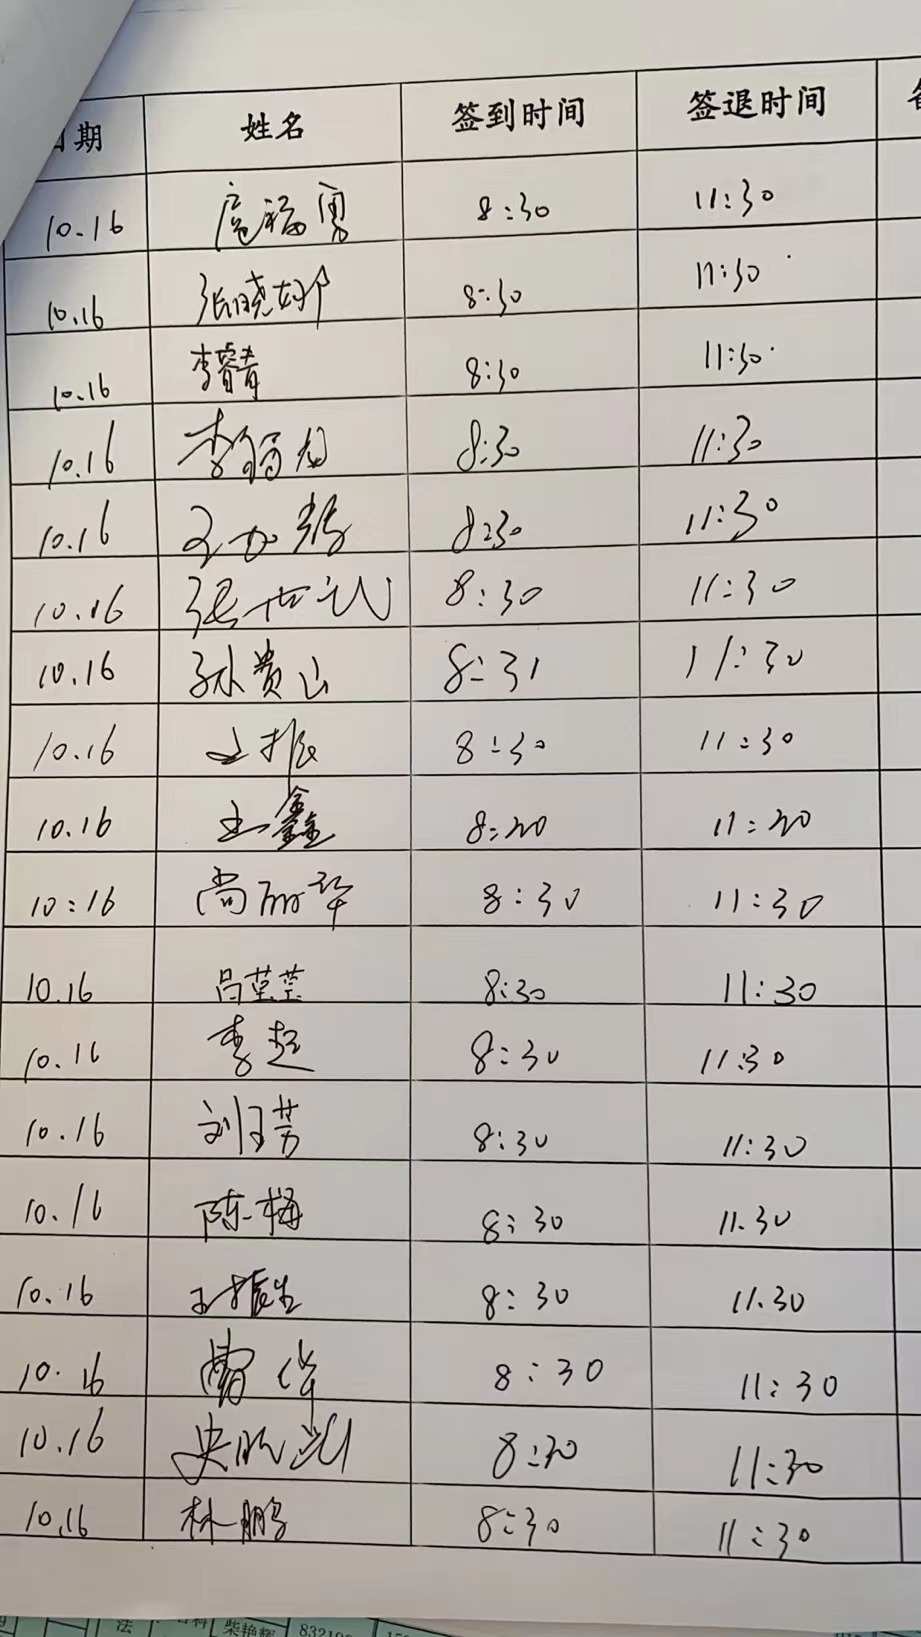 日期 姓名 签到时间 签退时间
10.16 庞福勇 8:30 11:30
10.16 张晓婷 8:30 11:30
10.16 李睿青 8:30 11:30
10.16 8:30 11:30
10.16 8:30 11:30
10.16 8:30 11:30
10.16 孙贵山 8:31 11:30
10.16 王振 8:30 11:30
10.16 王鑫 8:30 11:30
10:16 尚丽华 8:30 11:30
10.16 吕莹莹 8:30 11:30
10.16 李超 8:30 11:30
10.16 刘玉芳 8:30 11:30
10.16 陈梅 8:30 11.30
10.16 王振生 8:30 11.30
10.16 8:30 11:30
10.16 8:30 11:30
10.16 林鹏 8:30 11:30
法 柴艳辉